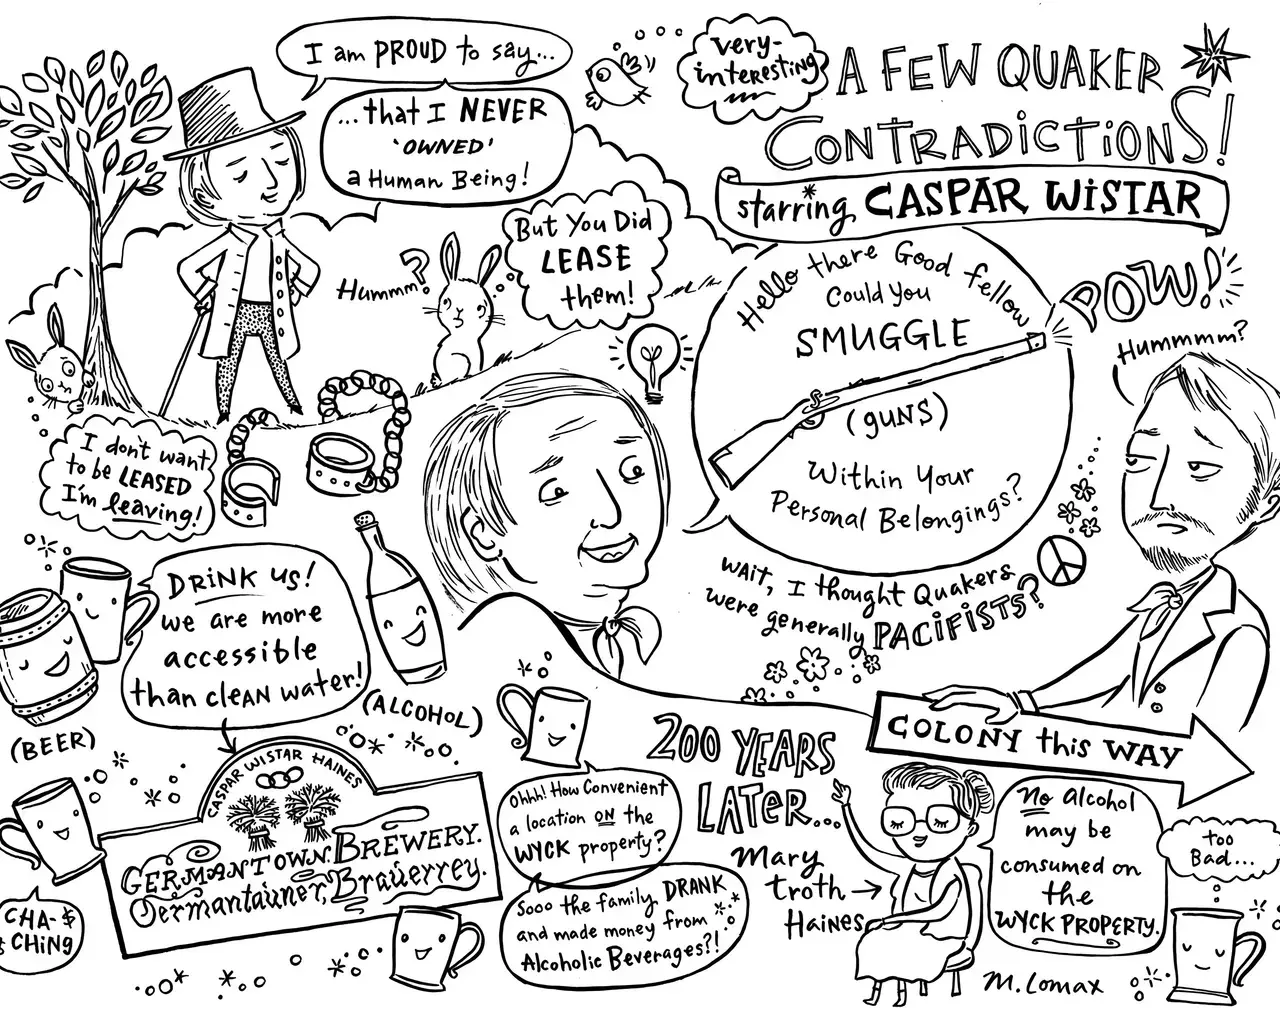 I am PROUD to say...
...that I NEVER
'OWNED'
a Human Being!
very-
interesting
A FEW QUAKER
CONTRADICTIONS!
starring CASPAR WISTAR
But You Did
LEASE
them!
Hummm?
I don't want
to be LEASED
I'm leaving!
Hello there Good fellow
Could You
SMUGGLE
(guns)
Within Your
Personal Belongings?
POW!
Hummmm?
wait, I thought Quakers
were generally PACIFISTS?
COLONY this WAY
DRINK us!
we are more
accessible
than clean water!
(BEER)
(ALCOHOL)
CASPAR WISTAR HAINES
GERMANTOWN BREWERY.
Germantauner, Brauerrey.
CHA-$
CHING
Ohhh! How Convenient
a location ON the
WYCK property?
Sooo the family DRANK
and made money from
Alcoholic Beverages?!
200 YEARS
LATER...
Mary
Troth
Haines
No Alcohol
may be
consumed on
the
WYCK PROPERTY.
Too
Bad...
M. Lomax